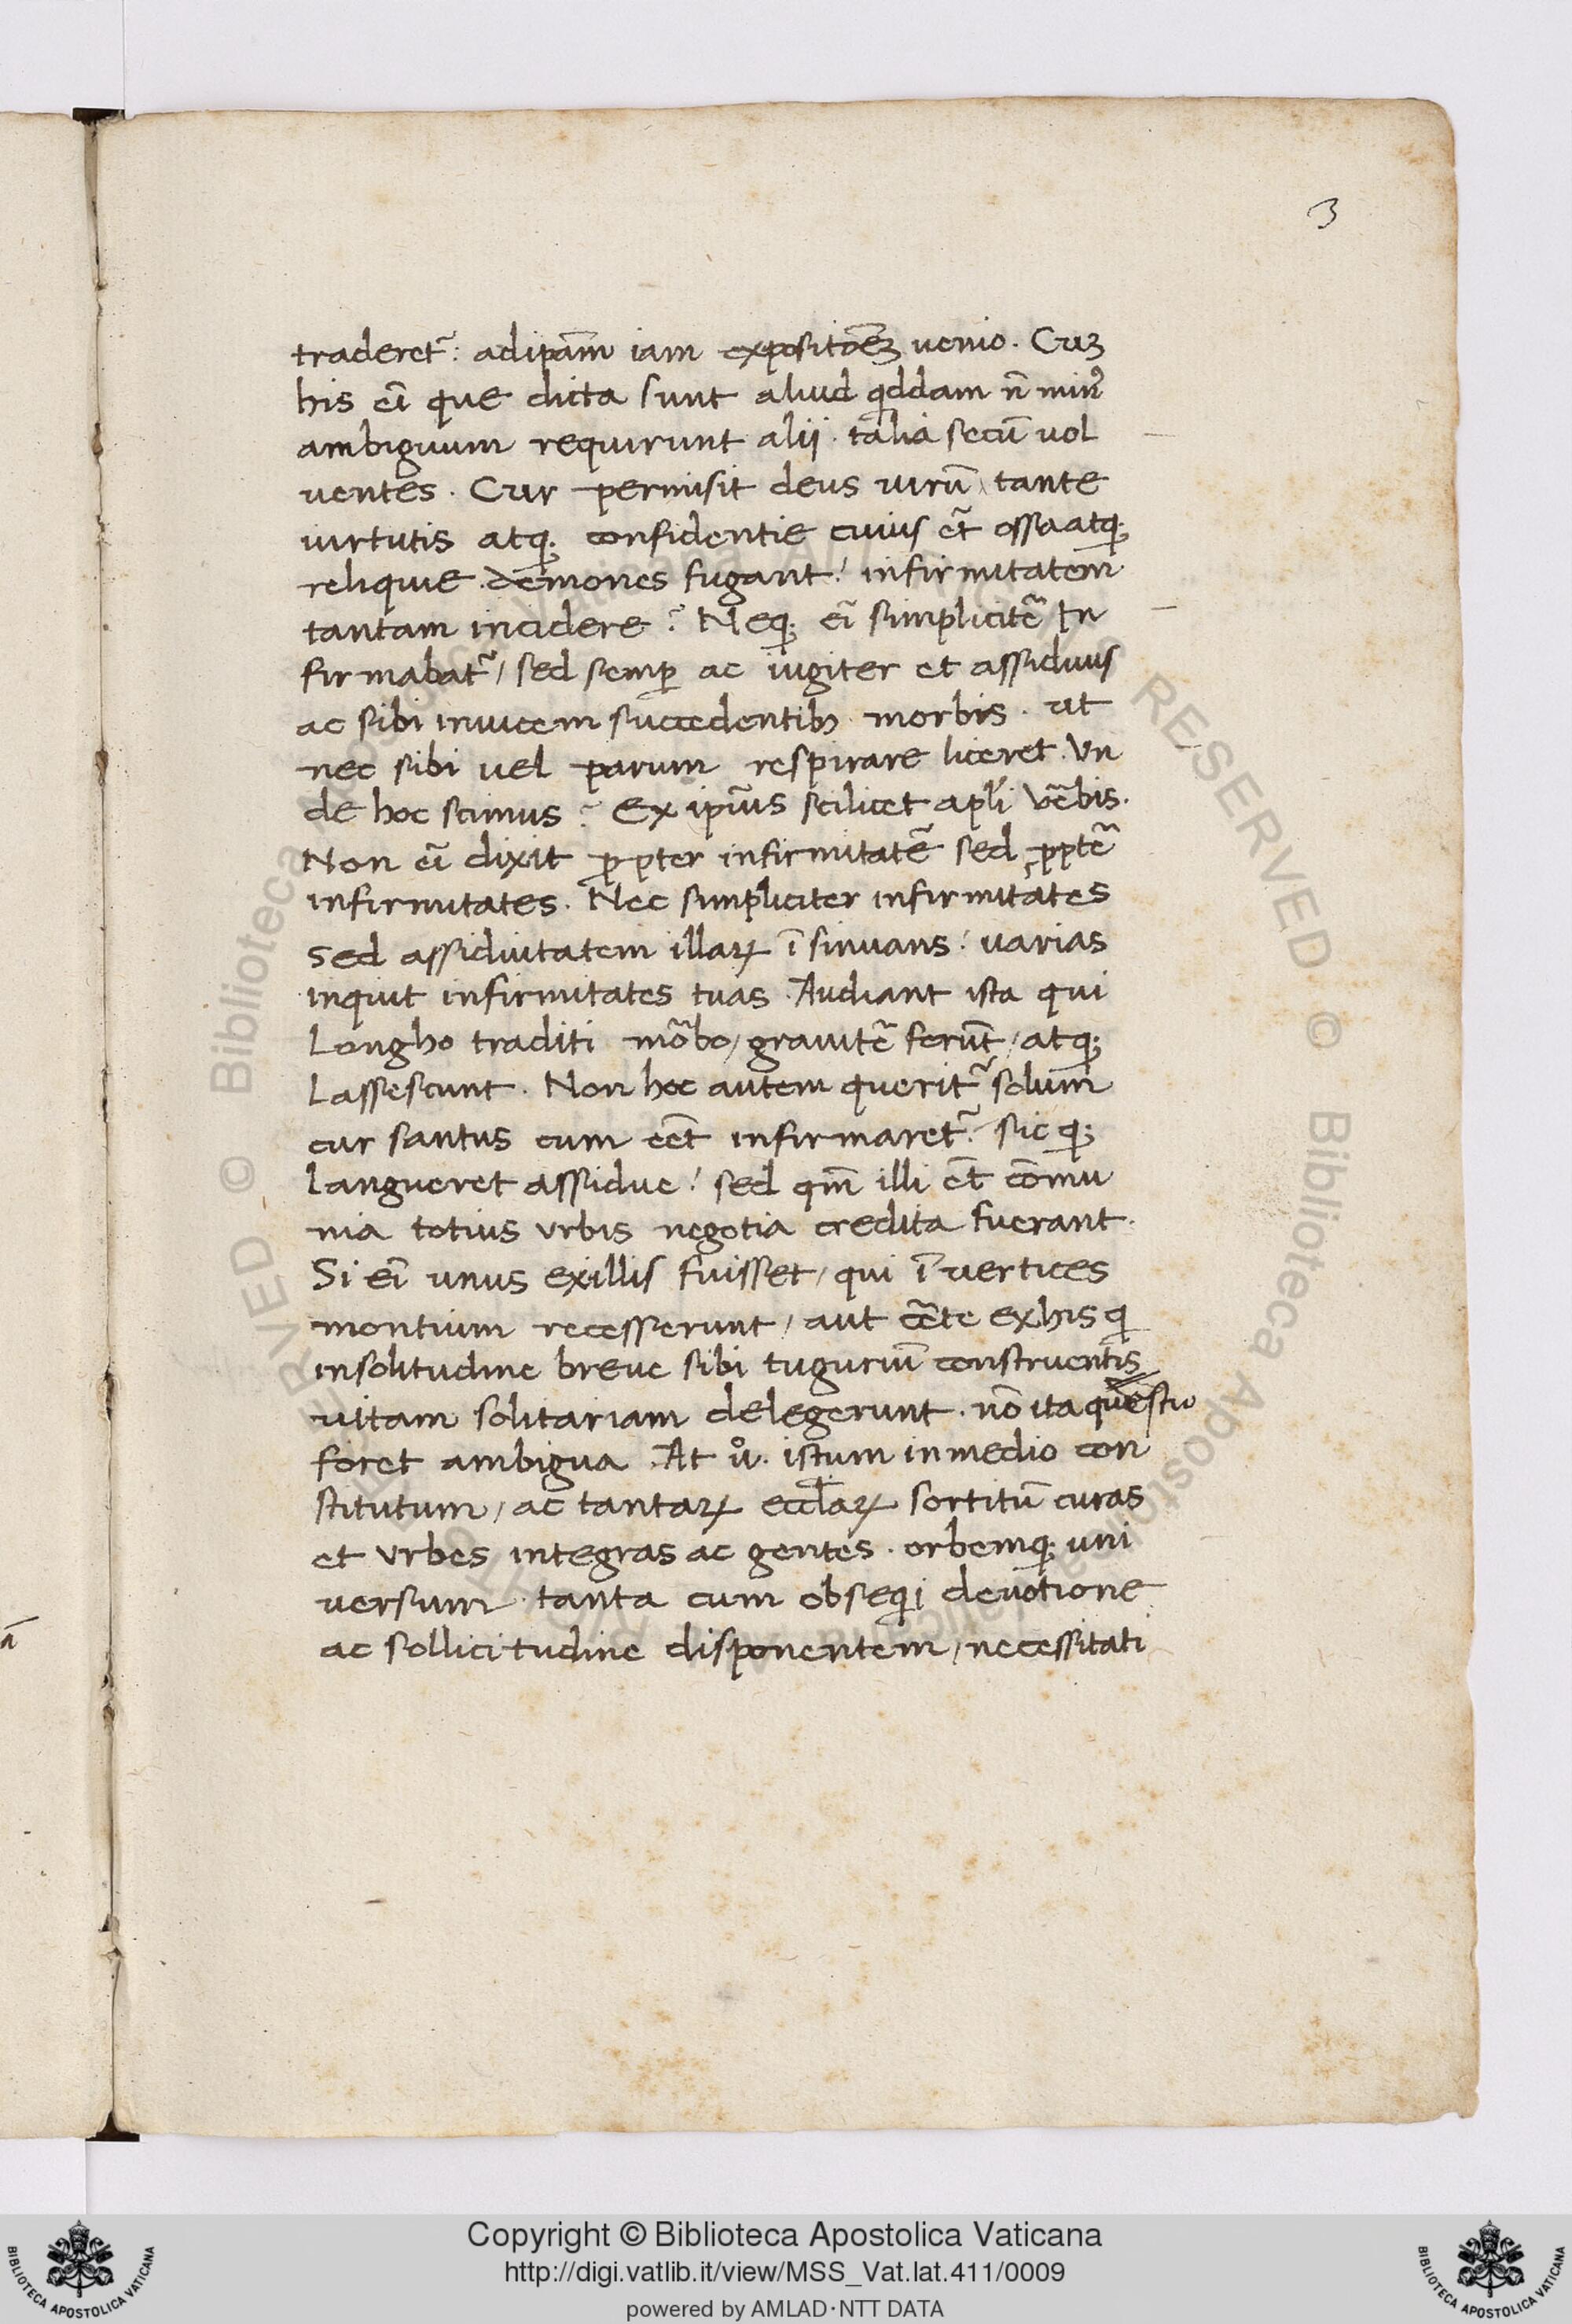 3
traderet᷑: adipãm iam expositõeꝫ uenio. Cuꝫ
his ei᷑ que dicta sunt aliud qddam n̄ min᷒
ambiguum requirunt alii. talia secū uol
uentes. Cur permisit deus uirū tante
uirtutis atq; confidentie cuius et̃ ossa atq;
reliquie demones fugant! infirmitatem
tantam incidere? Neq; ei᷑ simplicitẽ In
firmabat᷑/ sed semꝑ ac iugiter et assiduus
ac sibi inuicem succedentibꝫ morbis. ut
nec sibi uel parum respirare liceret. Un
de hoc scimus? Ex ip̄ius scilicet apl̃i ũbis.
Non ei᷑ dixit ꝓpter infirmitatē sed ꝓptẽ
infirmitates. Nec simpliciter infirmitates
sed assiduitatem illaꝝ ī sinuans! varias
inquit infirmitates tuas. Audiant ista qui
Longho traditi mõbo/ grauitẽ ferūt/ atq;
Lassescunt. Non hoc autem querit᷑ solum
cur santus cum eēt infirmaret᷑. sic q;
langueret assidue! sed qm̄ illi et̃ cōmu
nia totius urbis negotia credita fuerant.
Si ei᷑ unus exillis fuisset/ qui ī vertices
montium recesserunt/ aut cẽte exhis q
insolitudine breue sibi tuguriū construentis
uitam solitariam delegerunt. nō ita questio
foret ambigua. At uͦ. istum inmedio con
stitutum/ ac tantaꝝ eccl̃aꝝ sortitū curas
et urbes integras ac gentes. orbemq; uni
versum tanta cum obseqi deuotione
ac sollicitudine disponentem/ necessitati
© Biblioteca Apostolica Vaticana ALL RIGHTS RESERVED © Biblioteca Apostolica Vaticana ALL RIGHTS RESERVED
Copyright © Biblioteca Apostolica Vaticana
http://digi.vatlib.it/view/MSS_Vat.lat.411/0009
powered by AMLAD·NTT DATA
BIBLIOTECA APOSTOLICA VATICANA
BIBLIOTECA APOSTOLICA VATICANA